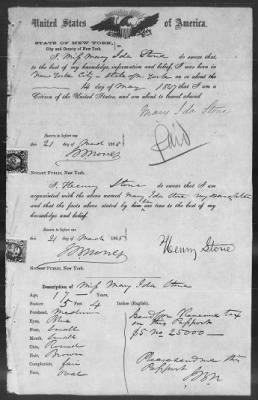 United States of America.
STATE OF NEW YORK,
City and County of New York.
I, Miss Mary Ida Stone do swear that
to the best of my knowledge, information and belief, I was born in
New York City – State of New York on or about the
day of May 1847 that I am a
Citizen of the United States, and am about to travel abroad
Mary Ida Stone
Sworn to before me
this 21 day of March 186
Paid
NOTARY PUBLIC, New York.
I, Henry Stone do swear that I am
acquainted with the above named Mary Ida Stone my daughter
and that the facts above stated by her are true to the best of my
knowledge and belief.
Sworn to before me
this 21 day of March 186
Henry Stone
NOTARY PUBLIC, New York.
Description of Miss Mary Ida Stone
Age, 17 Years
Stature, 5 Feet 4 Inches (English).
Forehead, Medium
Eyes, Blue
Nose, Small
Mouth, Small
Chin, Round
Hair, Brown
Complexion, fair
Face, Oval
tax
on this Passport
$5 No 25000
Please send me this
Passport